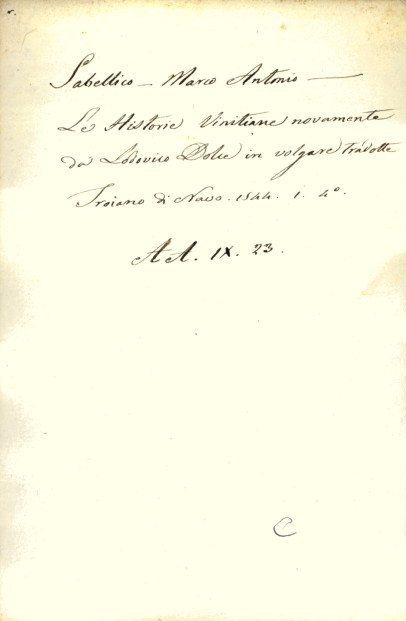 Sabellico — Marco Antonio —
Le Historie Vinitiane novamente
da Lodovico Dolce in volgare tradotte
Troiano di Navo. 1544. 1. 4°.
A A. IX. 23.
C